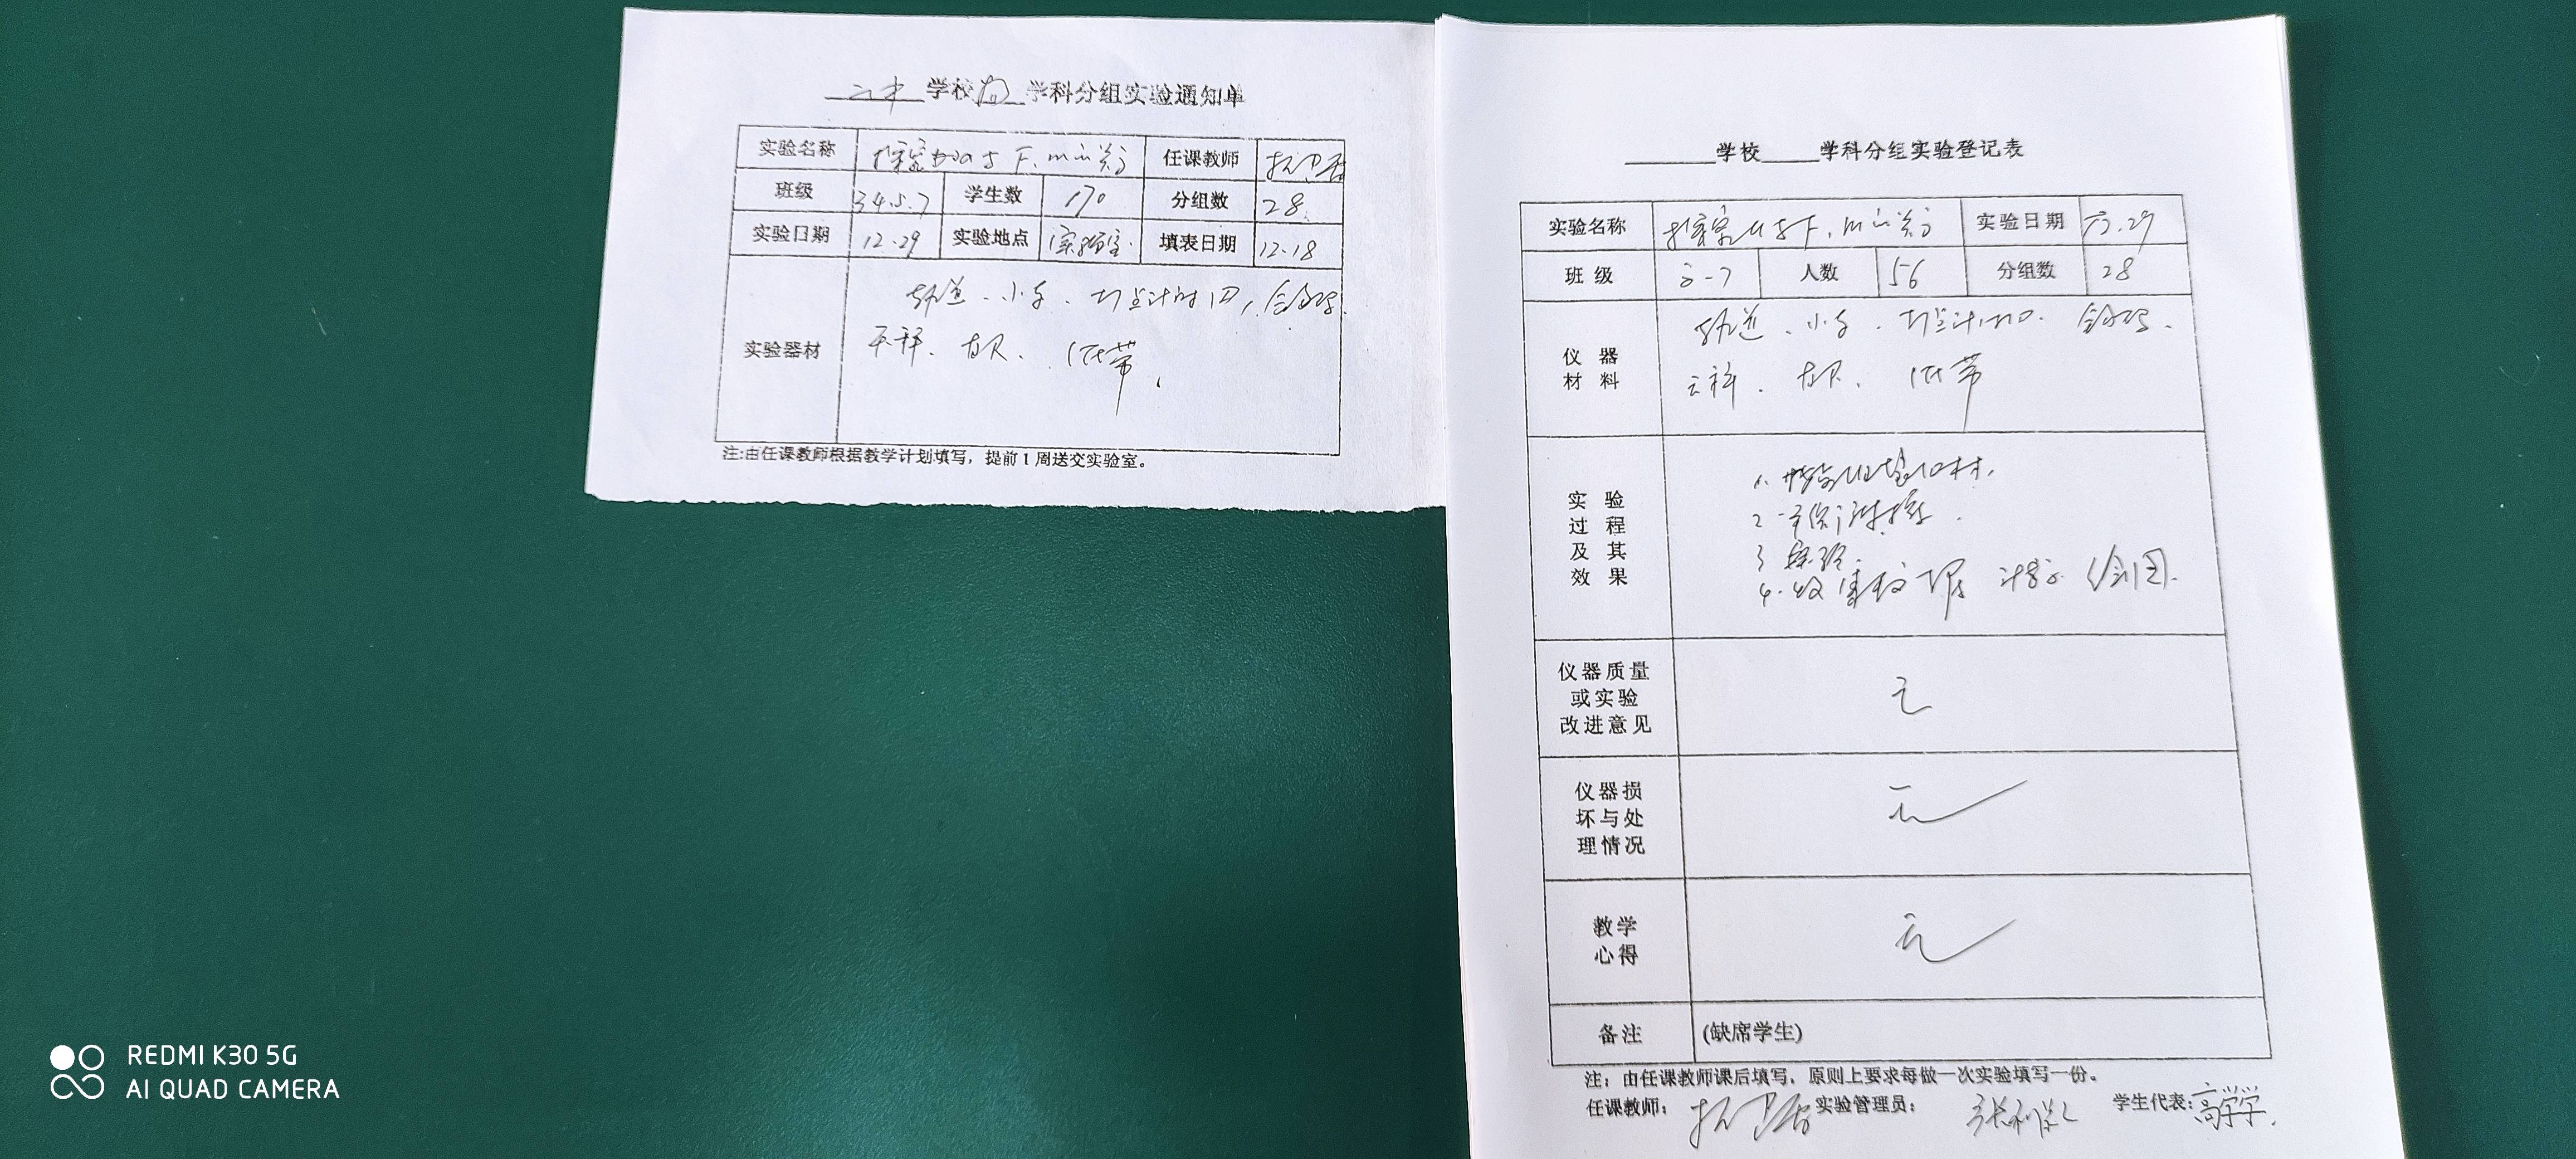 二中 学校 物 学科分组实验通知单
实验名称 探究加a与F、m的关系 任课教师
班级 3.4.5.7 学生数 170 分组数 28
实验日期 12.29 实验地点 实验室 填表日期 12.18
实验器材 轨道、小车、打点计时四、钩码、
天秤、直尺、纸带
注:由任课教师根据教学计划填写，提前1周送交实验室。
学校 学科分组实验登记表
实验名称 探究a与F、m的关系 实验日期 29
班 级 人数 56 分组数 28
仪 器
材 料
轨道、小车、打点计时四、钩码、
天秤、直尺、纸带
实 验
过 程
及 其
效 果
1.
2.
3 实验.
4.收集数据 计算 绘图.
仪器质量
或实验
改进意见
无
仪器损
坏与处
理情况
无
教学
心得
无
备注 (缺席学生)
注：由任课教师课后填写，原则上要求每做一次实验填写一份。
任课教师： 实验管理员： 学生代表:高学学
REDMI K30 5G
AI QUAD CAMERA